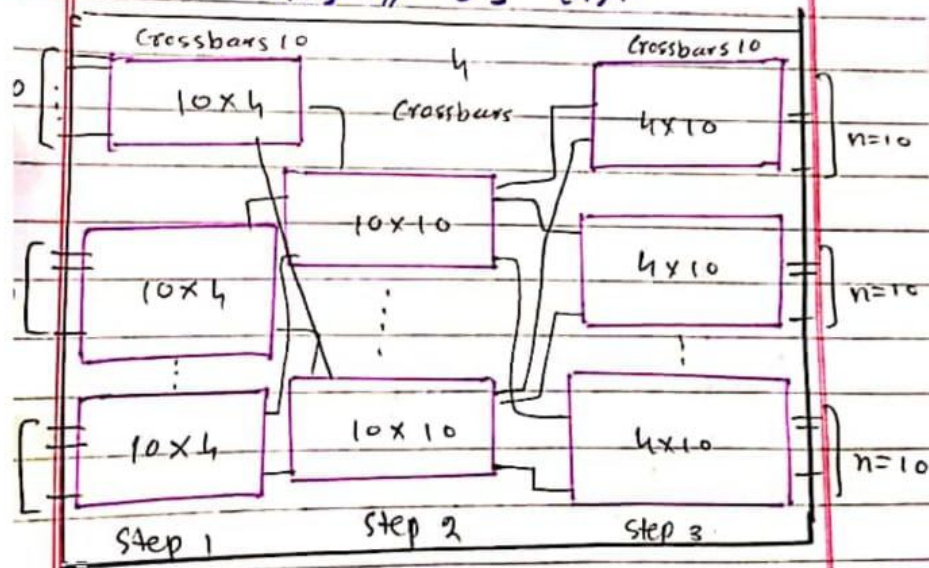 Crossbars 10
4
Crossbars
Crossbars 10
10 × 4
4 × 10
n=10
10 × 10
10 × 4
4 × 10
n=10
10 × 4
10 × 10
4×10
n=10
Step 1
Step 2
Step 3